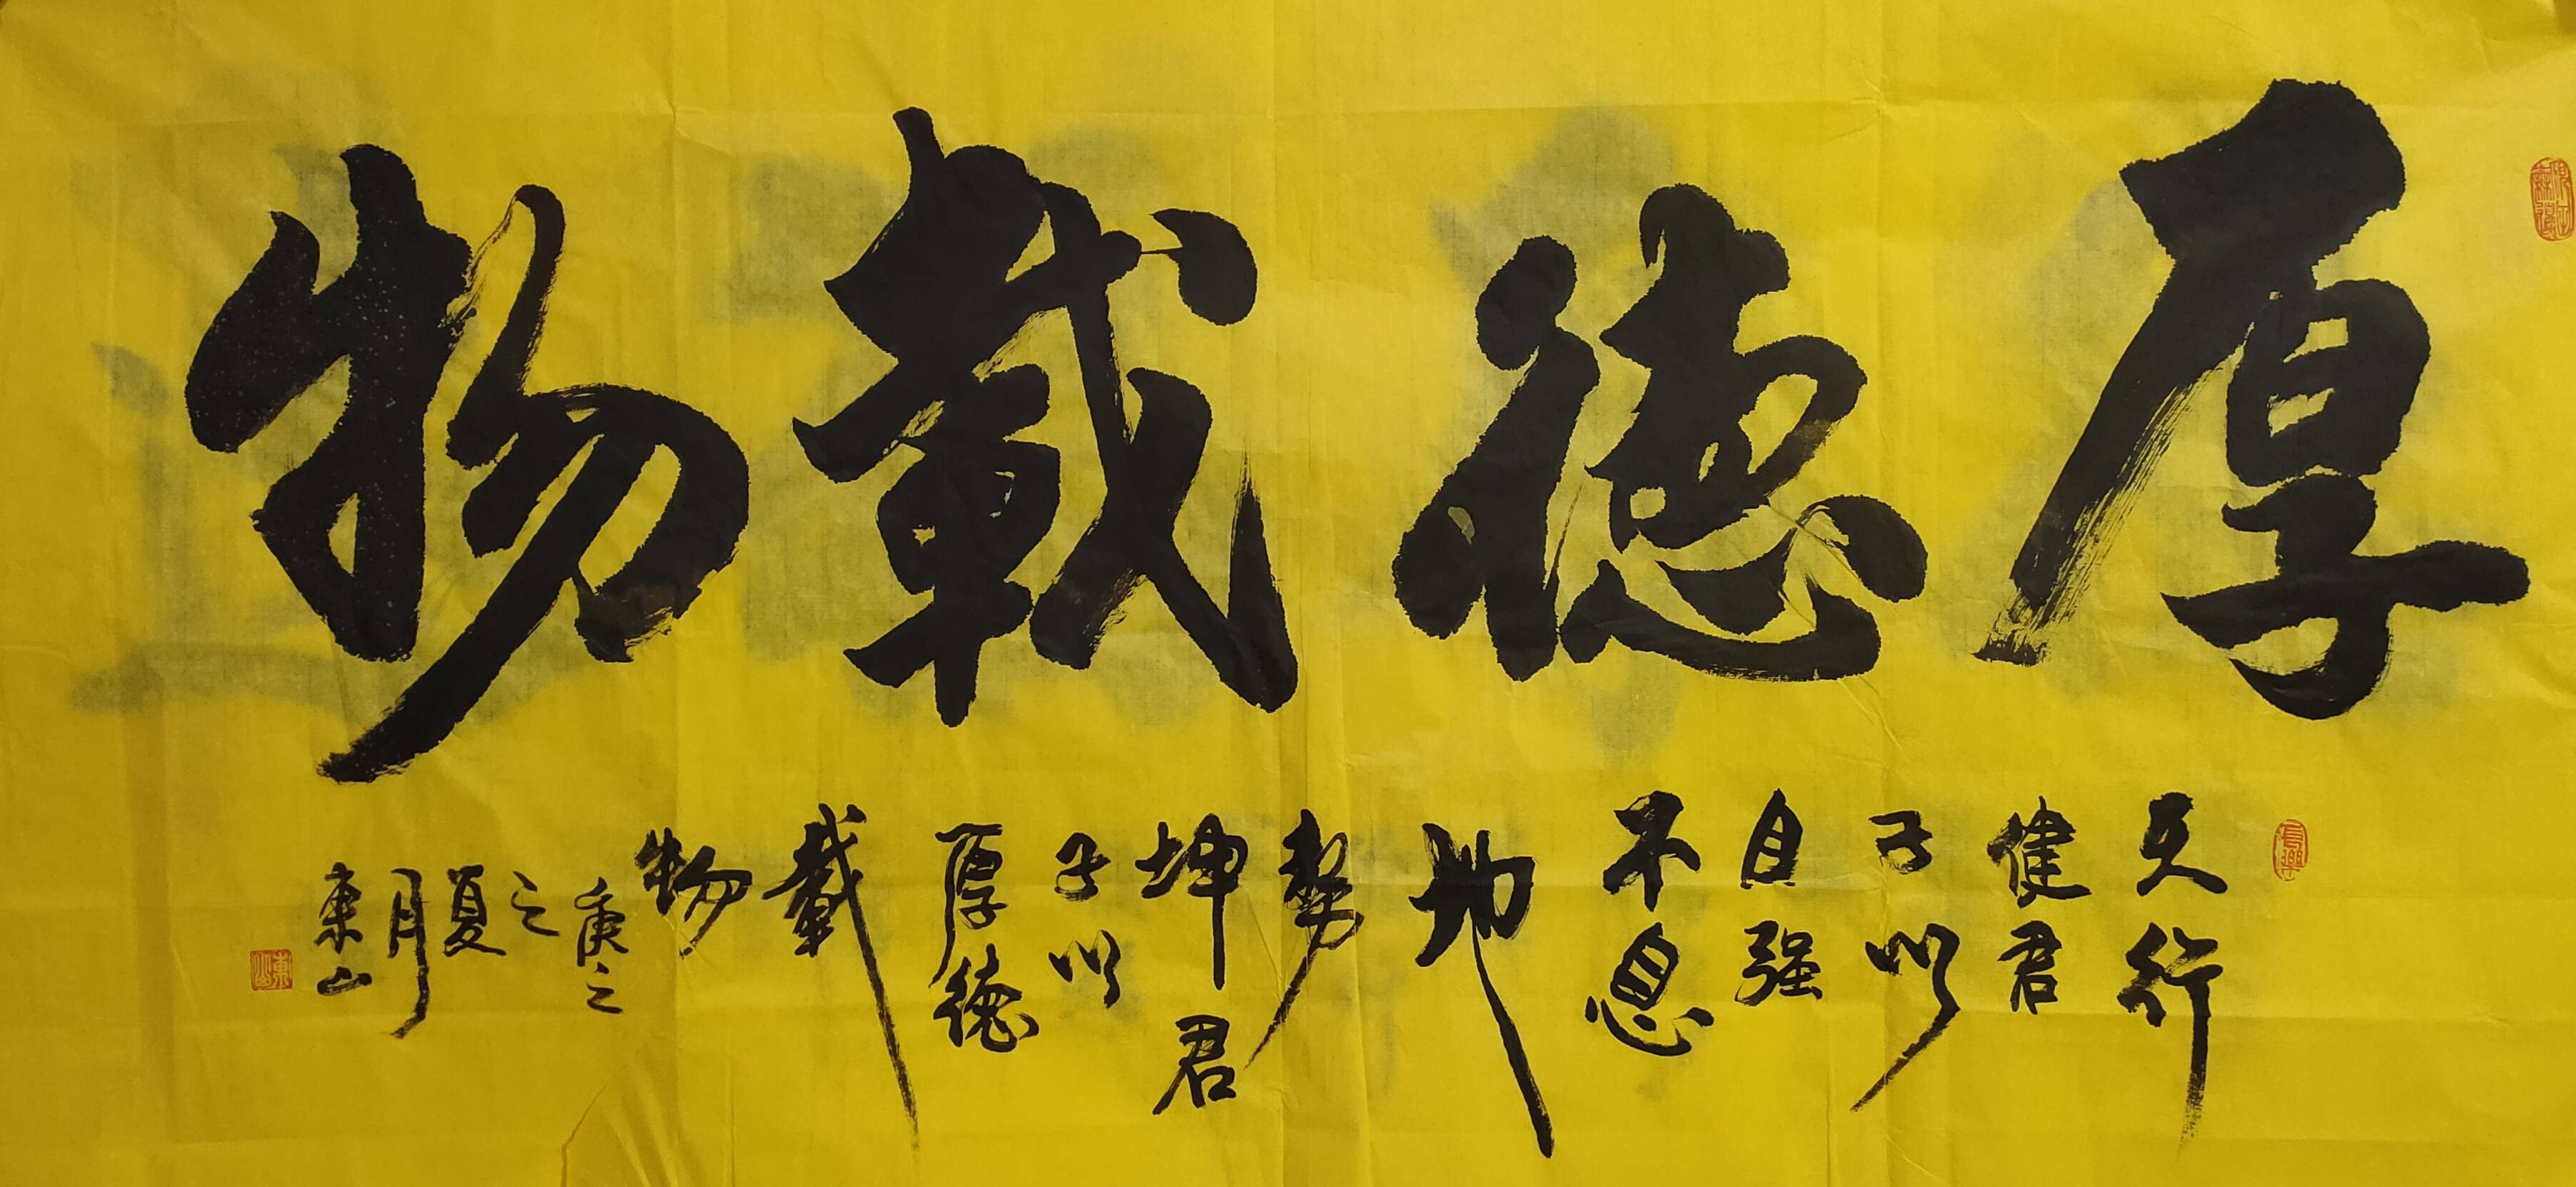 厚德載物
天行
健君
子以
自强
不息
地
势
坤君
子以
厚德
載
物
之
夏
月
東山
東山